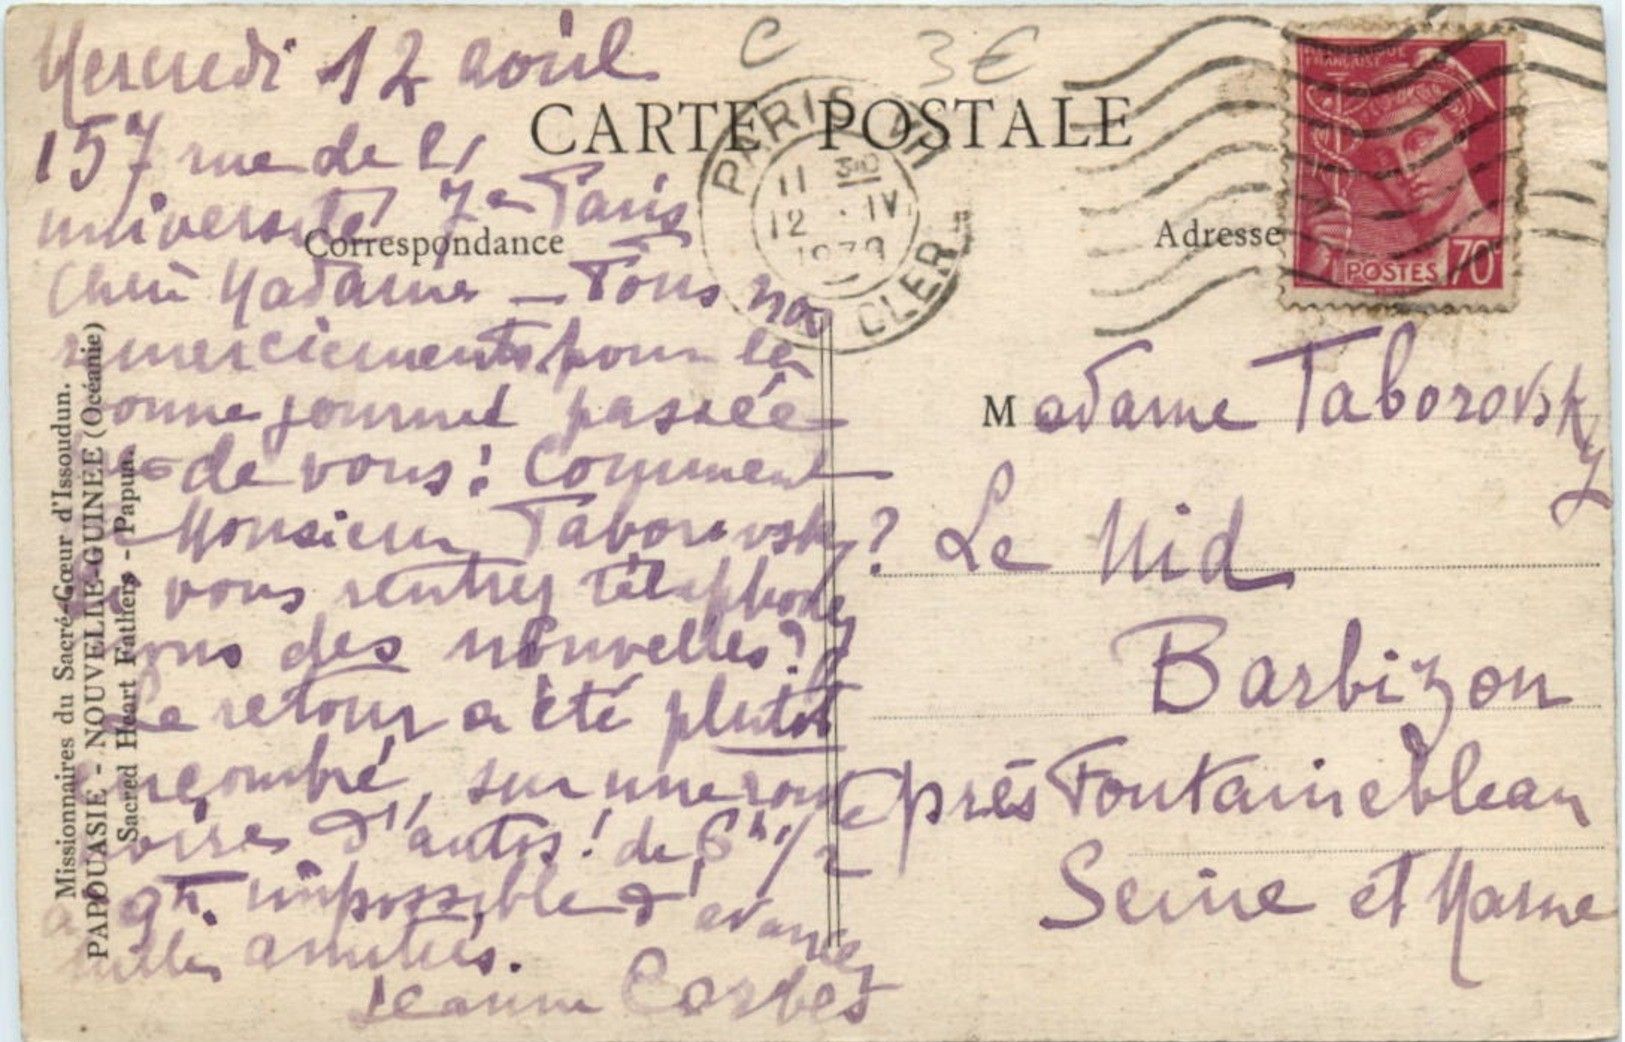 Mercredi 12 avril
157 rue de l'
université 7e Paris
Chère Madame — Tous nos
remerciements pour la
bonne journée passée
de vous! Comment
Monsieur Taborovsky?
vous rentrez téléphonez
nous des nouvelles?
Le retour a été plutôt
encombré, sur une route
noires d'autos! de 6h 1/2
à 9h. impossible d'avancer
milles amitiés.
Jeanne Corbet
C
3€
CARTE POSTALE
Correspondance
Adresse
PARIS VII
CLER
11 30
12 IV
1939
REPUBLIQUE
FRANÇAISE
POSTES 70
Madame Taborovsky
Le Nid
Barbizon
près Fontainebleau
Seine et Marne
Missionnaires du Sacré-Cœur d'Issoudun.
PAPOUASIE - NOUVELLE-GUINEE (Océanie)
Sacred Heart Fathers - Papua.